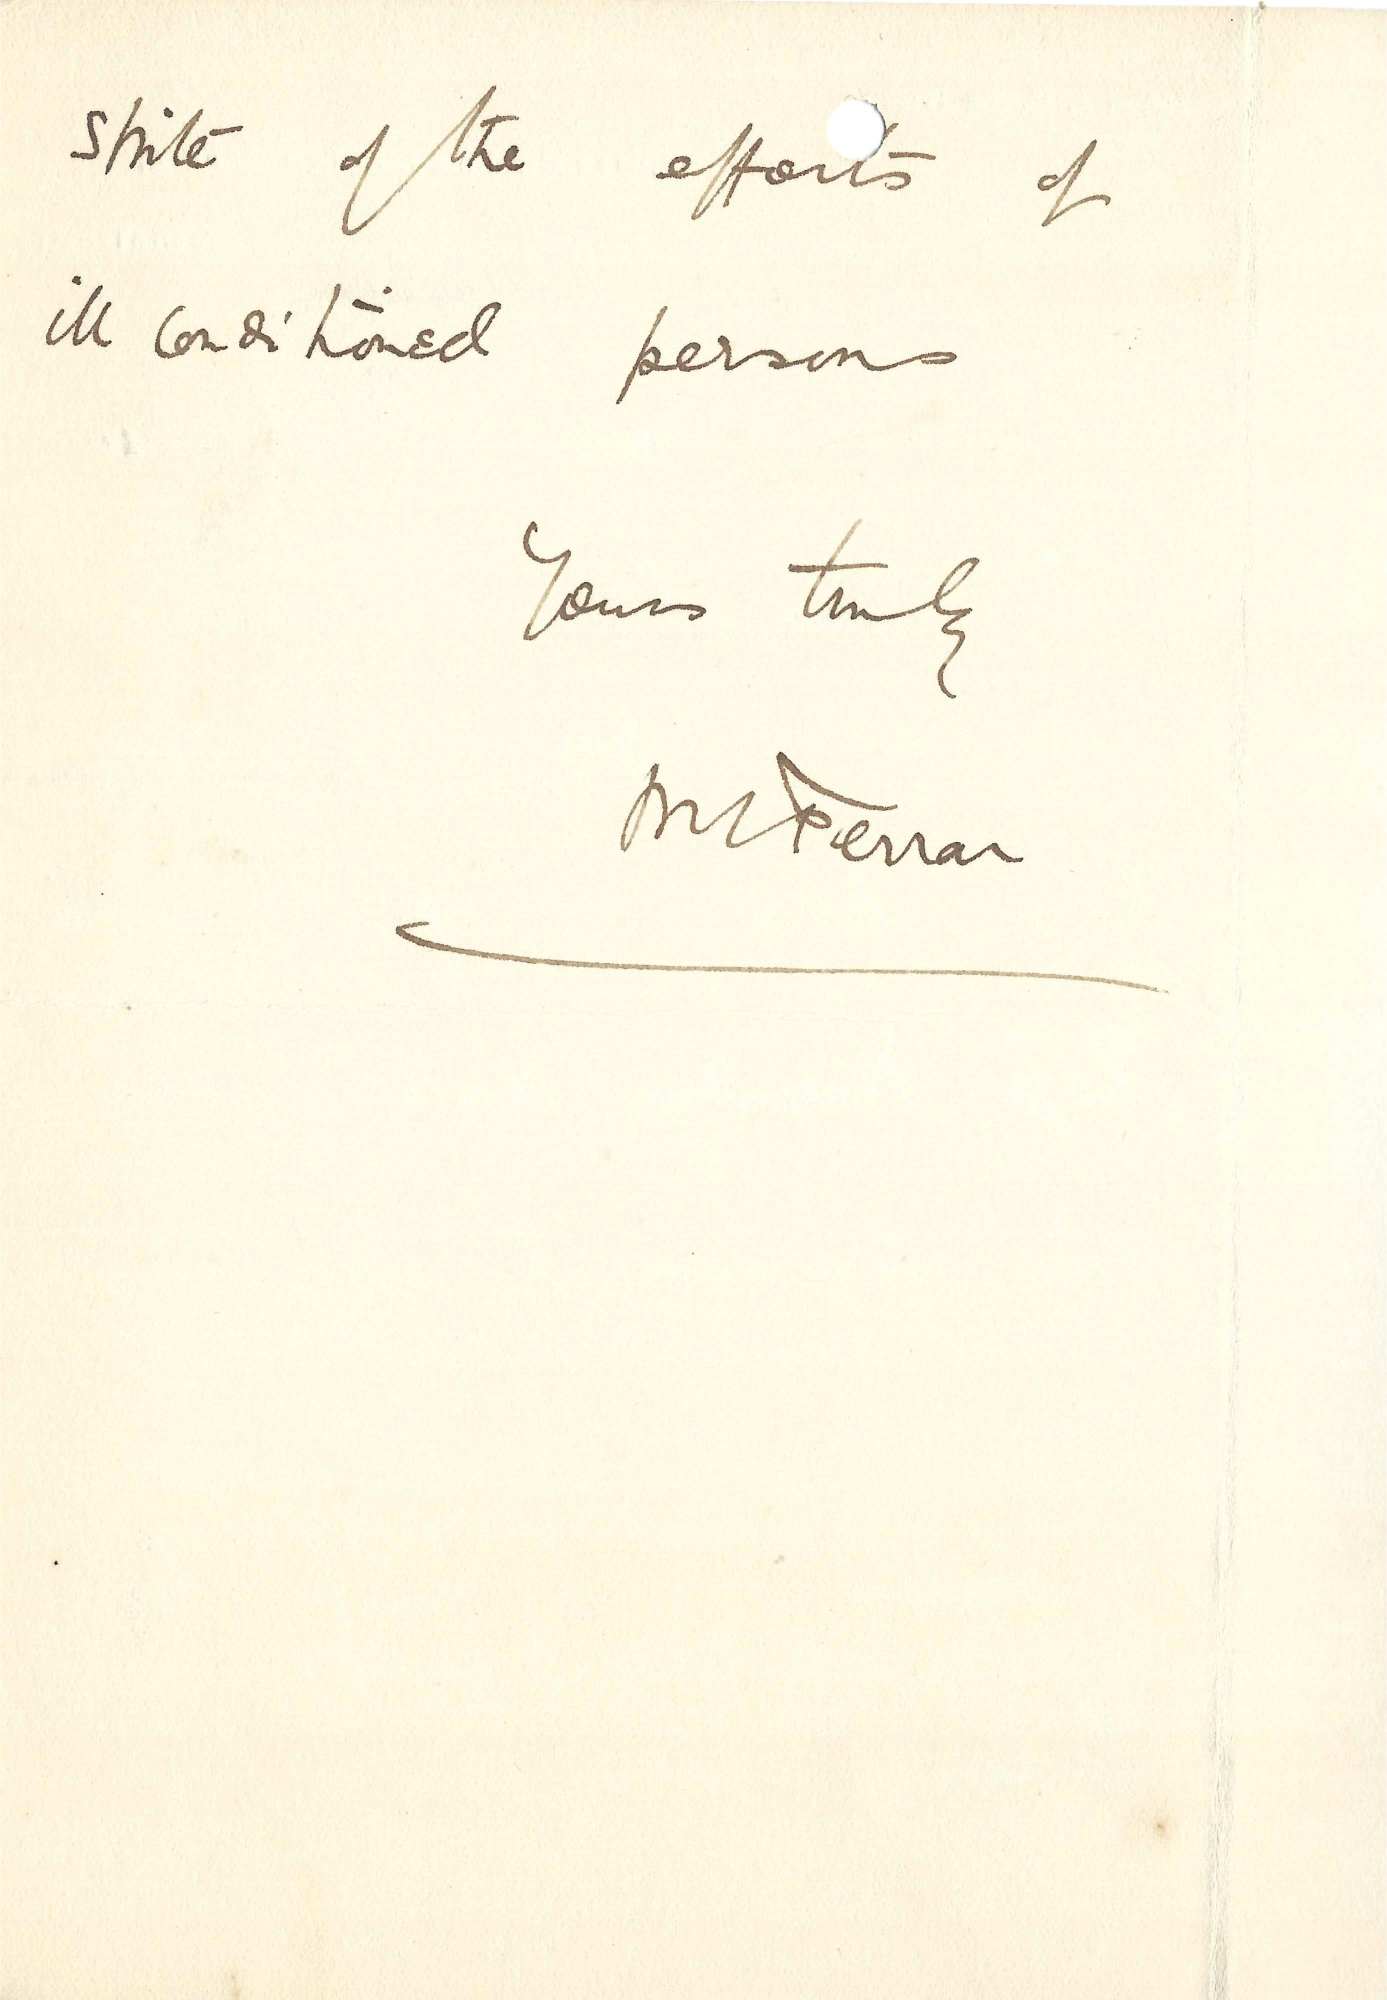 spite of the efforts of
ill conditioned persons
Yours truly
W L Ferrar